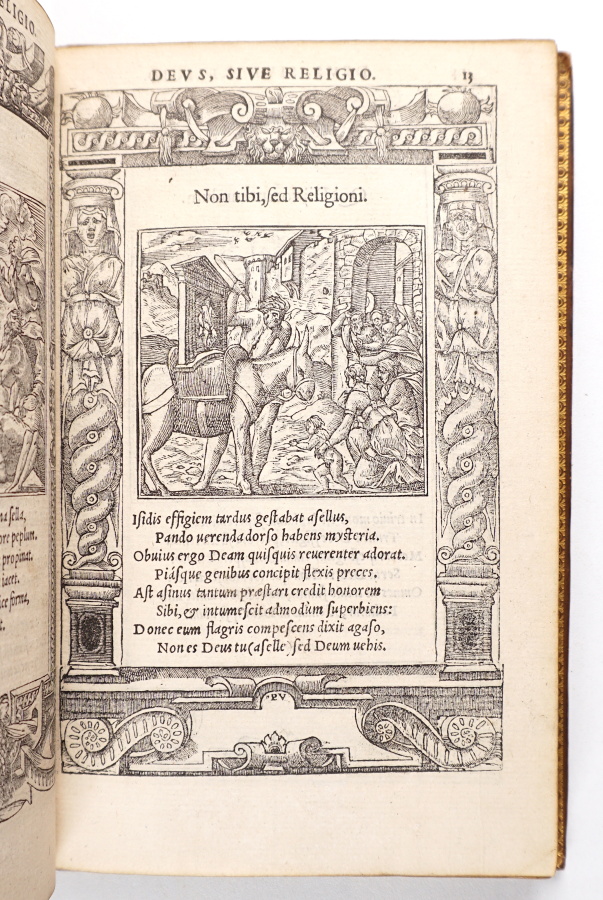 ELIGIO.
na sella,
ore peplum.
propinat.
iacet.
ice forma,
t.
DEVS, SIVE RELIGIO. 13
Non tibi, sed Religioni.
Isidis effigiem tardus gestabat asellus,
Pando uerenda dorso habens mysteria.
Obuius ergo Deam quisquis reuerenter adorat.
Piásque genibus concipit flexis preces.
Ast asinus tantum præstari credit honorem
Sibi, & intumescit admodum superbiens:
Donec eum flagris compescens dixit agaso,
Non es Deus tu (aselle) sed Deum uehis.
PV